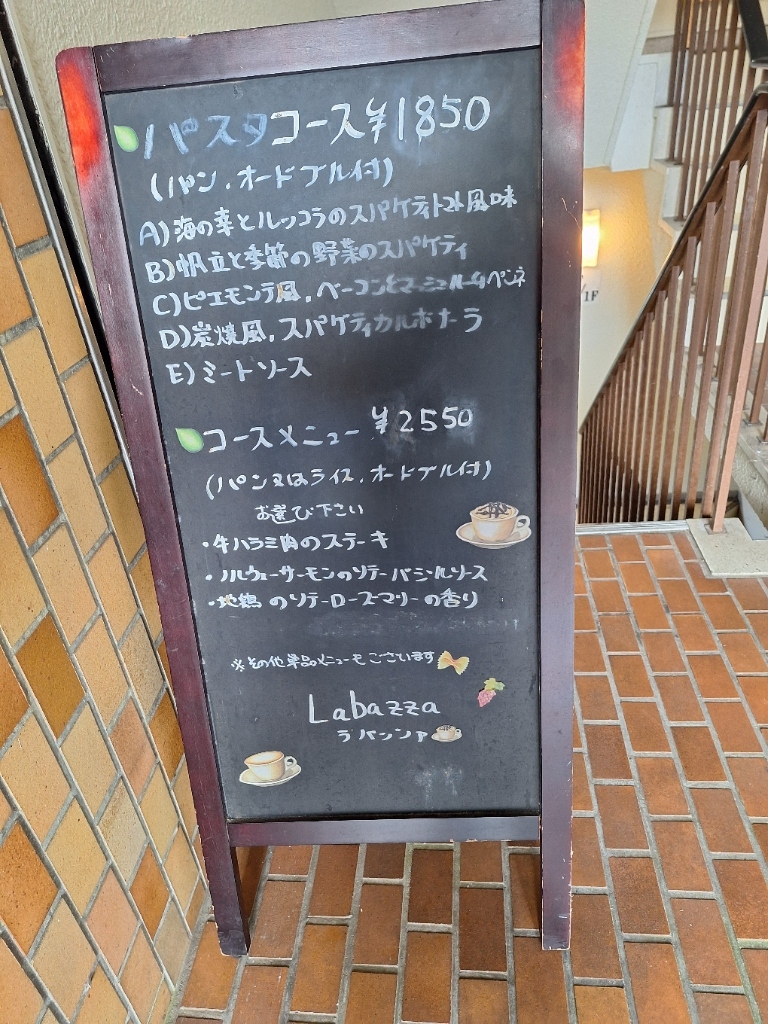 パスタコース¥1850
(パン.オードブル付)
A)海の幸とルッコラのスパゲティトマト風味
B)帆立と季節の野菜のスパゲティ
C)ピエモンテ風.ベーコンとマッシュルームペンネ
D)炭焼風.スパゲティカルボナーラ
E)ミートソース
コースメニュー ¥2550
(パン又はライス.オードブル付)
お選び下さい
・牛ハラミ肉のステーキ
・ノルウェーサーモンのソテーバジルソース
・地鶏のソテーローズマリーの香り
※その他単品メニューもございます
Labazza
ラバッツァ
1F